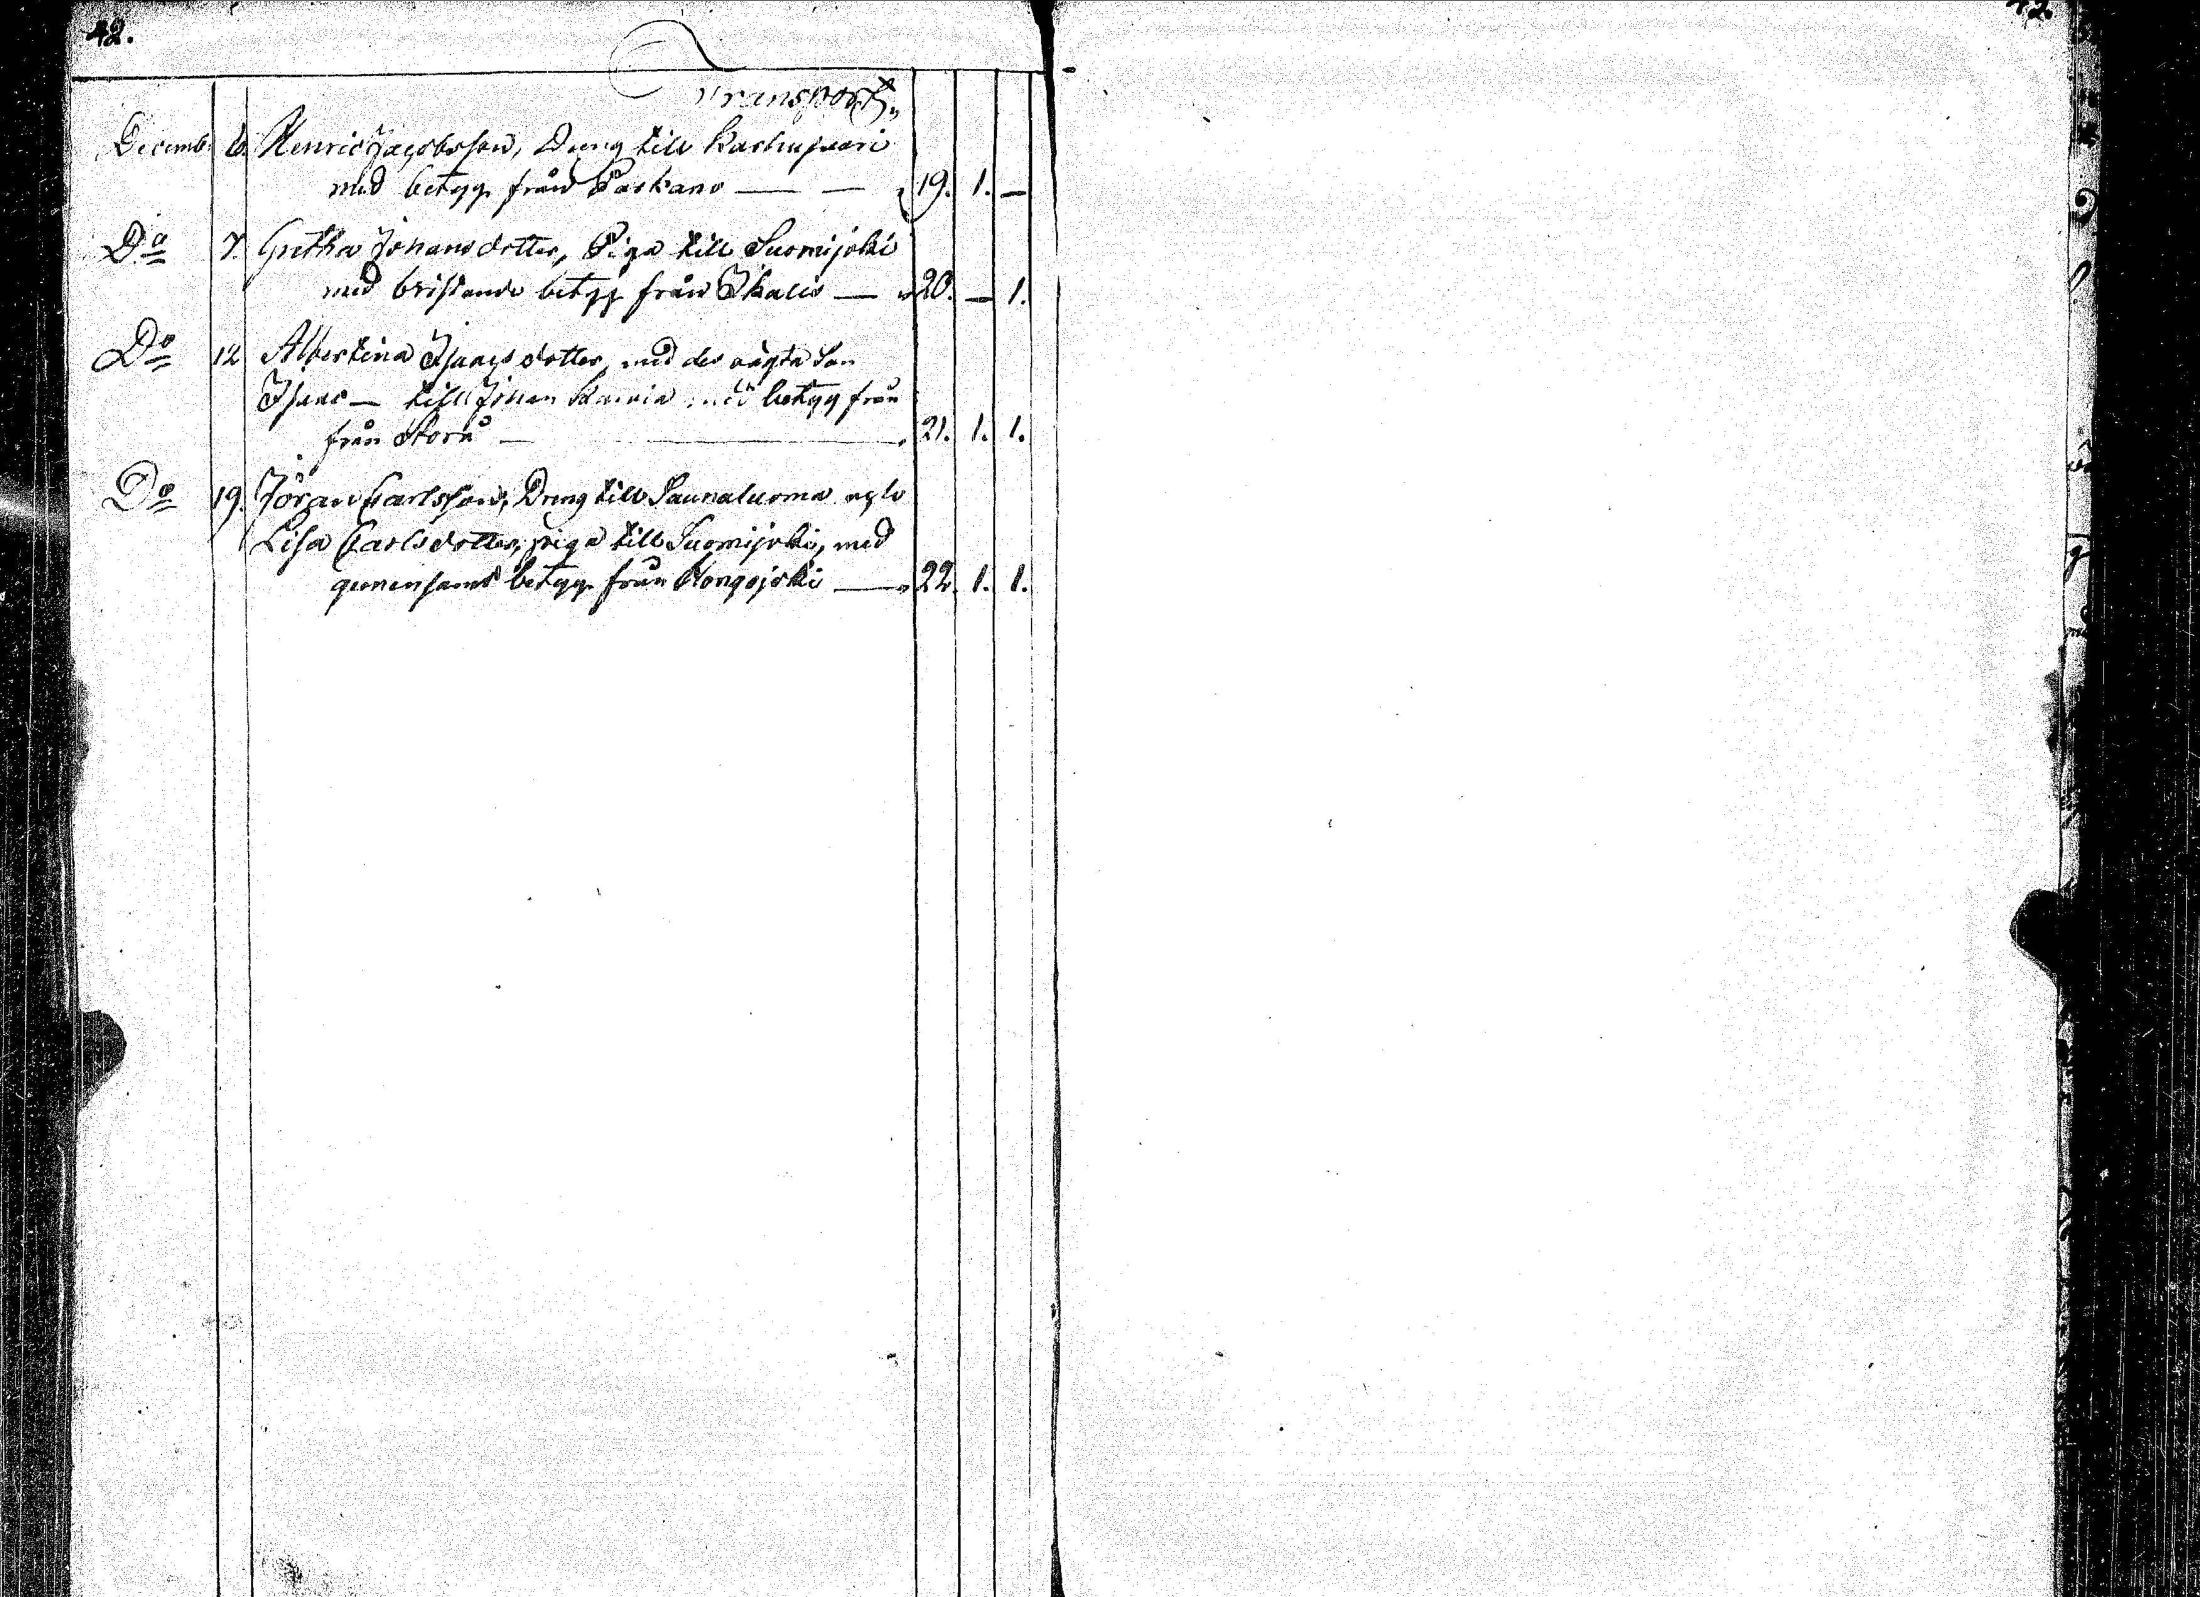 42.
42.
Transport,,
Decemb. 6. Henric Jacobsson, Dreng till Karhuvuori
med betyg från Parkano — — „ 19. 1. —
Do 7. Gretha Johansdotter, Piga till Suomijoki
med bristande betyg från Ikalis — „ 20. — 1.
Do 12 Albertina Isaacsdotter, med des oägta Son
Isaac — till Johan med betyg från
från Storå — „ 21. 1. 1.
Do 19. Jöran Carlsson, Dreng till Saunaluoma och
Lisa Carlsdotter, piga till Suomijoki, med
gemensamt betyg från Hongojoki — „ 22. 1. 1.